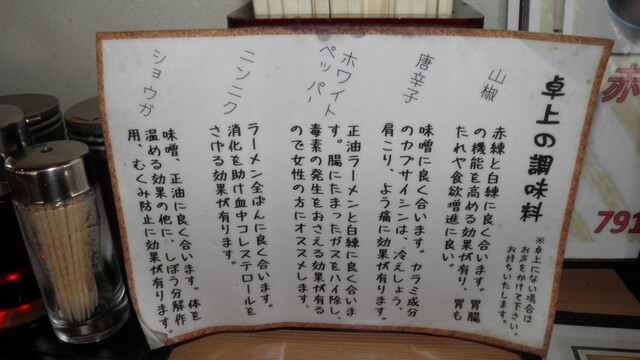 卓上の調味料
※卓上にない場合は
お声をかけて下さい。
お持ちいたします。
山椒
赤練と白練に良く合います。胃腸
の機能を高める効果が有り、胃も
たれや食欲増進に良い。
唐辛子
味噌に良く合います。カラミ成分
のカプサイシンは、冷えしょう、
肩こり、よう痛に効果が有ります。
ホワイト
ペッパー
正油ラーメンと白練に良く合いま
す。腸にたまったガスをハイ除し、
毒素の発生をおさえる効果が有る
ので女性の方にオススメします。
ニンニク
ラーメン全ぱんに良く合います。
消化を助け血中コレステロールを
さげる効果が有ります。
ショウガ
味噌、正油に良く合います。体を
温める効果の他に、しぼう分解作
用、むくみ防止に効果が有ります。
赤
791